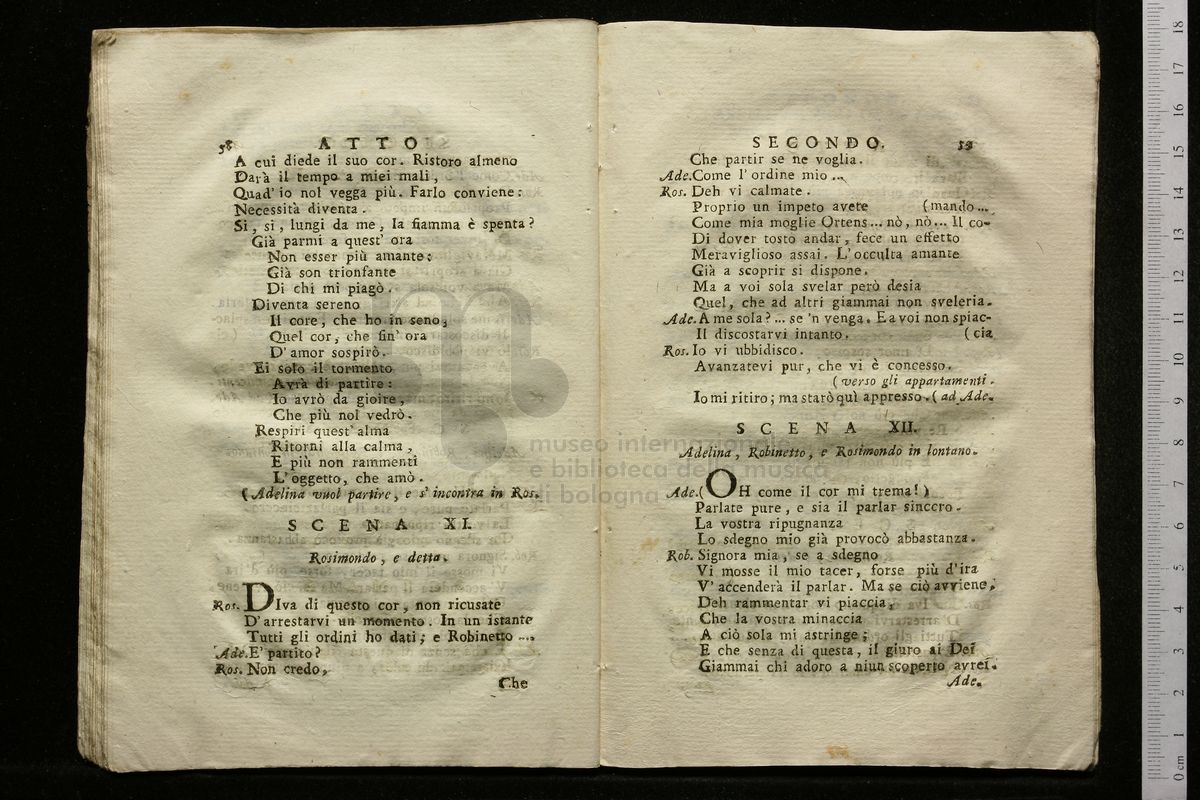 58 ATTO
A cui diede il suo cor. Ristoro almeno
Darà il tempo a miei mali,
Quad' io nol vegga più. Farlo conviene:
Necessità diventa.
Si, si, lungi da me, la fiamma è spenta?
Già parmi a quest' ora
Non esser più amante:
Già son trionfante
Di chi mi piagò.
Diventa sereno
Il core, che ho in seno,
Quel cor, che fin' ora
D' amor sospirò.
Ei solo il tormento
Avrà di partire:
Io avrò da gioire,
Che più nol vedrò.
Respiri quest' alma
Ritorni alla calma,
E più non rammenti
L' oggetto, che amò.
(Adelina vuol partire, e s' incontra in Ros.
SCENA XI.
Rosimondo, e detta.
Ros. DIva di questo cor, non ricusate
D' arrestarvi un momento. In un istante
Tutti gli ordini ho dati; e Robinetto ....
Ade. E' partito?
Ros. Non credo,
Che
SECONDO. 59
Che partir se ne voglia.
Ade. Come l' ordine mio ...
Ros. Deh vi calmate.
Proprio un impeto avete (mando ...
Come mia moglie Ortens ... nò, nò ... Il co-
Di dover tosto andar, fece un effetto
Meraviglioso assai. L' occulta amante
Già a scoprir si dispone.
Ma a voi sola svelar però desia
Quel, che ad altri giammai non sveleria.
Ade. A me sola? ... se 'n venga. E a voi non spiac-
Il discostarvi intanto. (cia
Ros. Io vi ubbidisco.
Avanzatevi pur, che vi è concesso.
(verso gli appartamenti.
Io mi ritiro; ma starò quì appresso. (ad Ade.
SCENA XII.
Adelina, Robinetto, e Rosimondo in lontano.
Ade. (OH come il cor mi trema!)
Parlate pure, e sia il parlar sincero.
La vostra ripugnanza
Lo sdegno mio già provocò abbastanza.
Rob. Signora mia, se a sdegno
Vi mosse il mio tacer, forse più d'ira
V' accenderà il parlar. Ma se ciò avviene,
Deh rammentar vi piaccia,
Che la vostra minaccia
A ciò sola mi astringe;
E che senza di questa, il giuro ai Dei
Giammai chi adoro a niun scoperto avrei.
Ade.
museo internazionale
e biblioteca della musica
di bologna
0 cm 1 2 3 4 5 6 7 8 9 10 11 12 13 14 15 16 17 18